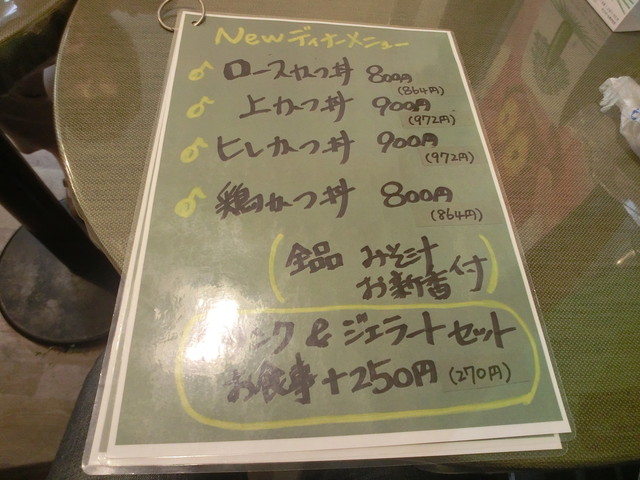 Newディナーメニュー
ロースかつ丼 800円
(864円)
上かつ丼 900円
(972円)
ヒレかつ丼 900円
(972円)
鶏かつ丼 800円
(864円)
(全品 みそ汁
お新香付)
ンク & ジェラートセット
お食事+250円 (270円)